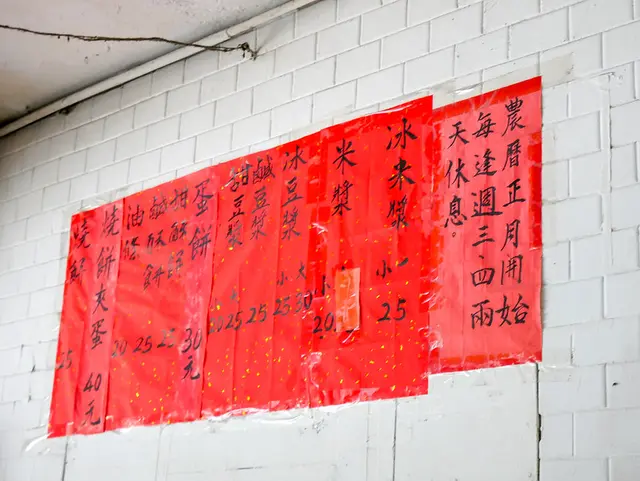 農曆正月開始
每逢週三四兩
天休息。
冰米漿 小 25
米漿 小 20
冰豆漿 大 30 小 25
鹹豆漿 25
甜豆漿 大 25 小 20
蛋餅 30元
甜酥餅 25
鹹酥餅 25
油條 20
燒餅夾蛋 40元
燒餅 25